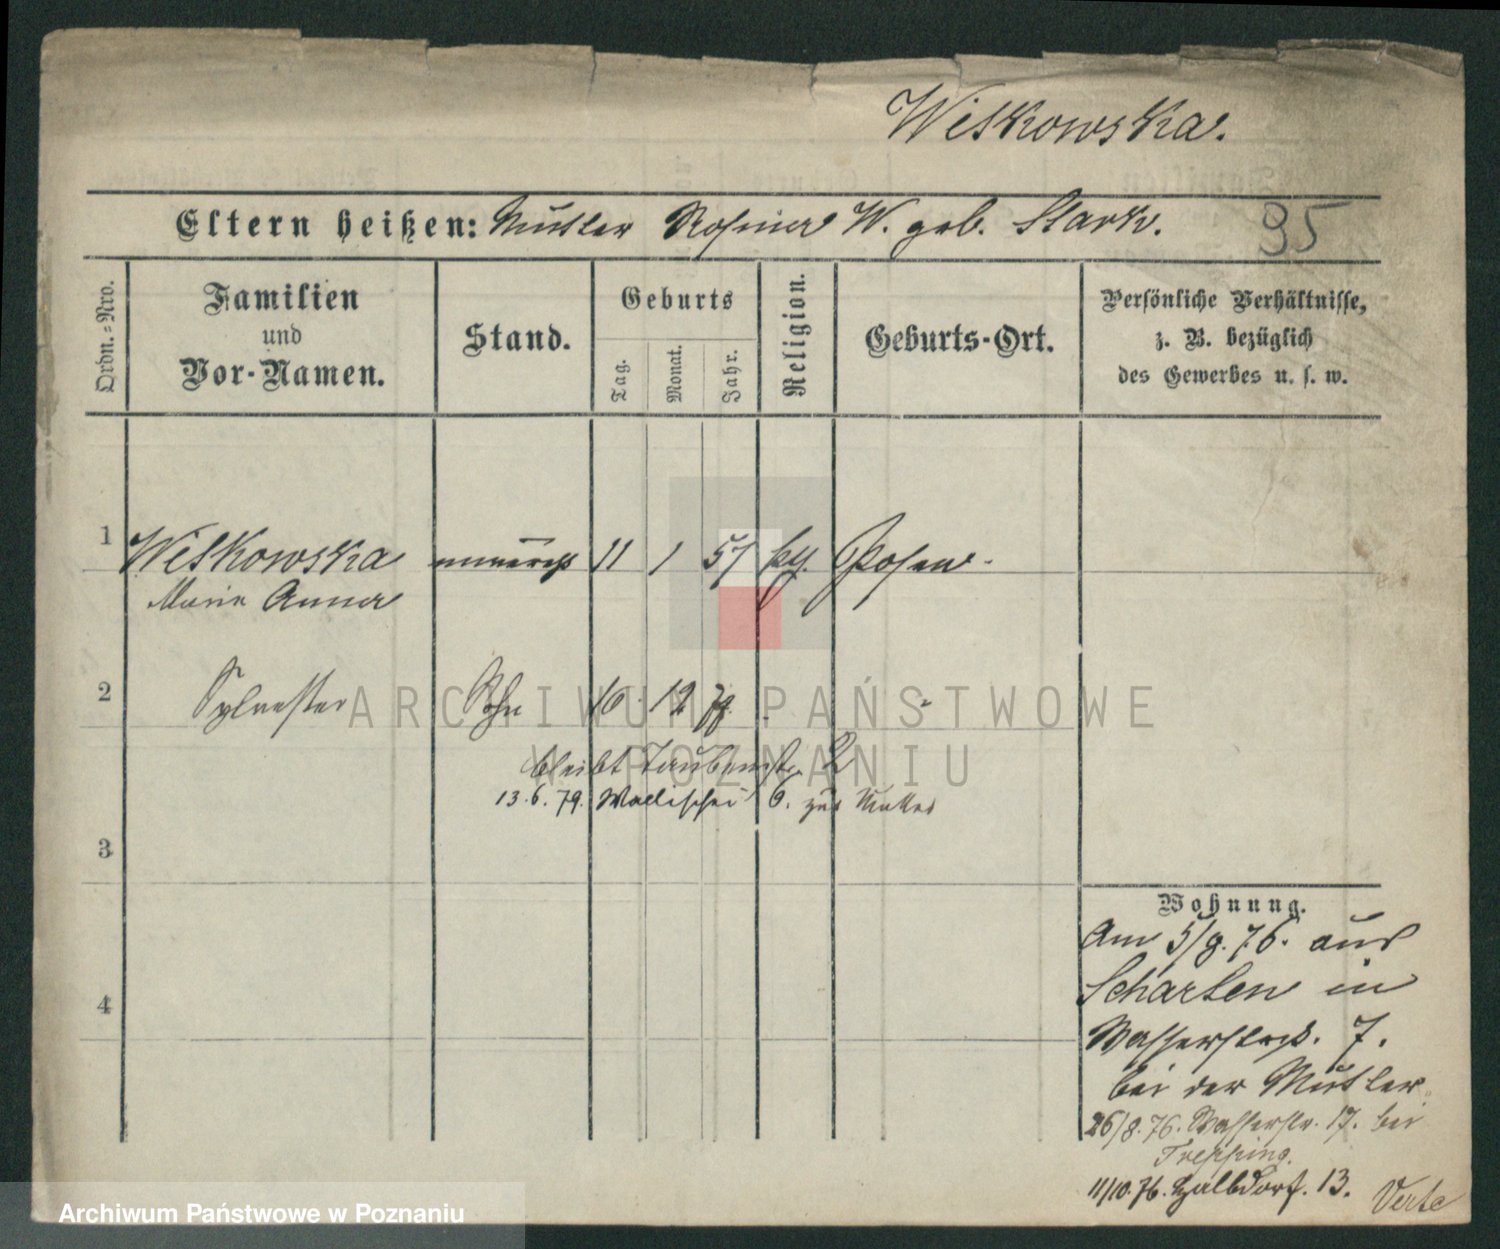 Witkowska.
Eltern heißen: Mutter Rosina W. geb. Stark.
95
Ordn.-Nro.
Familien
und
Vor-Namen.
Stand.
Geburts
Tag.
Monat.
Jahr.
Religion.
Geburts-Ort.
Persönliche Verhältnisse,
z. B. bezüglich
des Gewerbes u. s. w.
1 Witkowska unverehl. 11 1 57 Posen.
Maria Anna
2 Sylvester Sohn 10 12 "
ARCHIWUM PAŃSTWOWE
W POZNANIU
bleibt Taubenstr. 2
13.6.79. Wallischei 6. zur Mutter
3
4
Wohnung.
Am 5/8.76. aus
in
Wasserstr. 7.
bei der Mutter
26/8.76. Wasserstr. 17. bei
11/10.76. Halbdorf. 13.
Verte
Archiwum Państwowe w Poznaniu